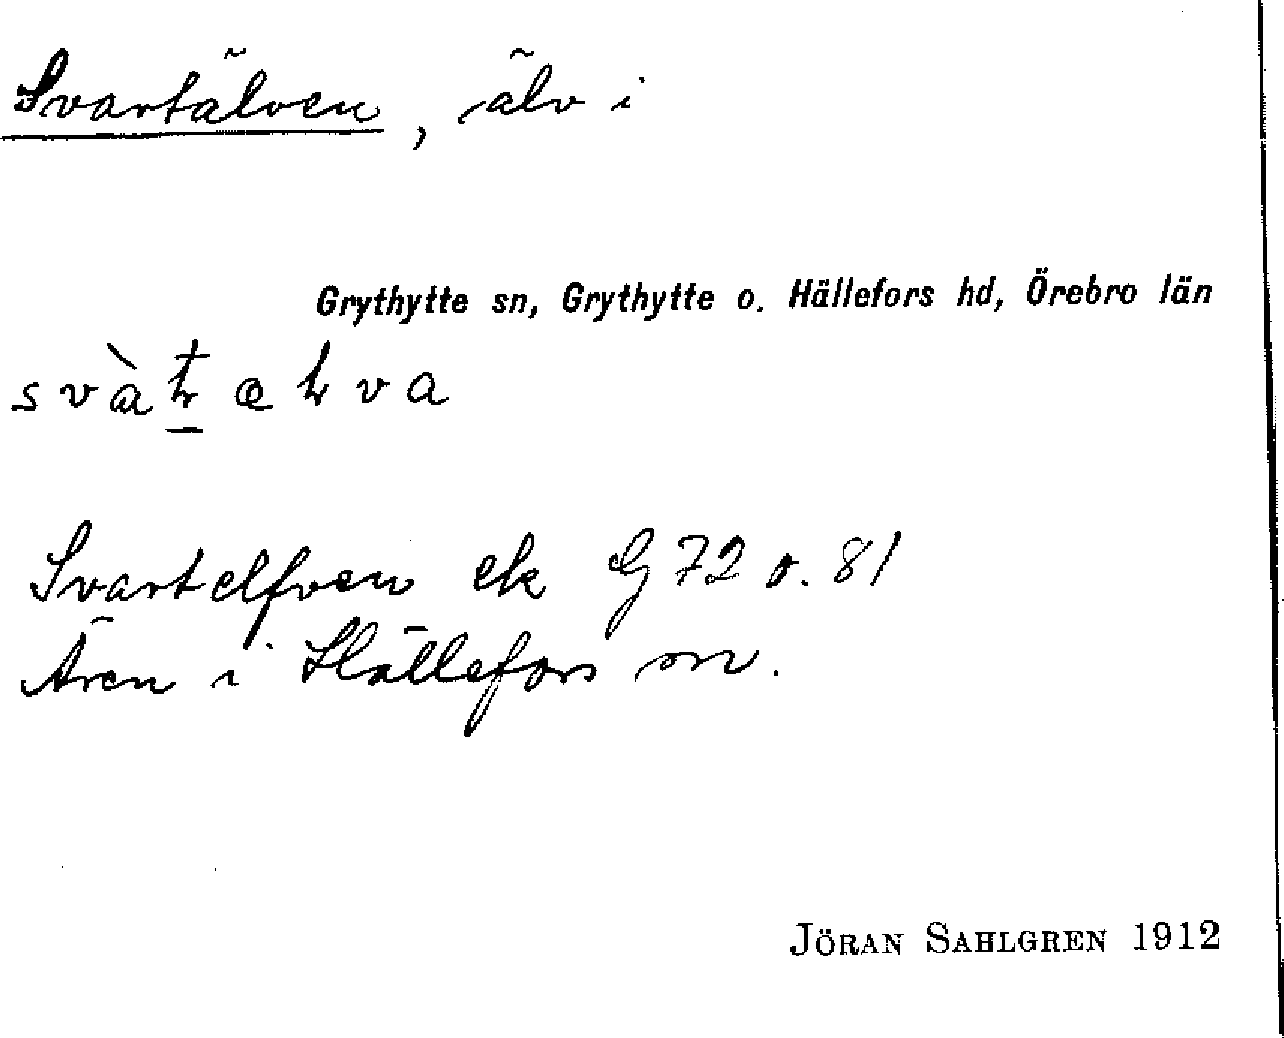 Svartälven, älv i
Grythytte sn, Grythytte o. Hällefors hd, Örebro län
Svartelfven ek G 72 o. 81
Även i Hällefors sn.
JÖRAN SAHLGREN 1912